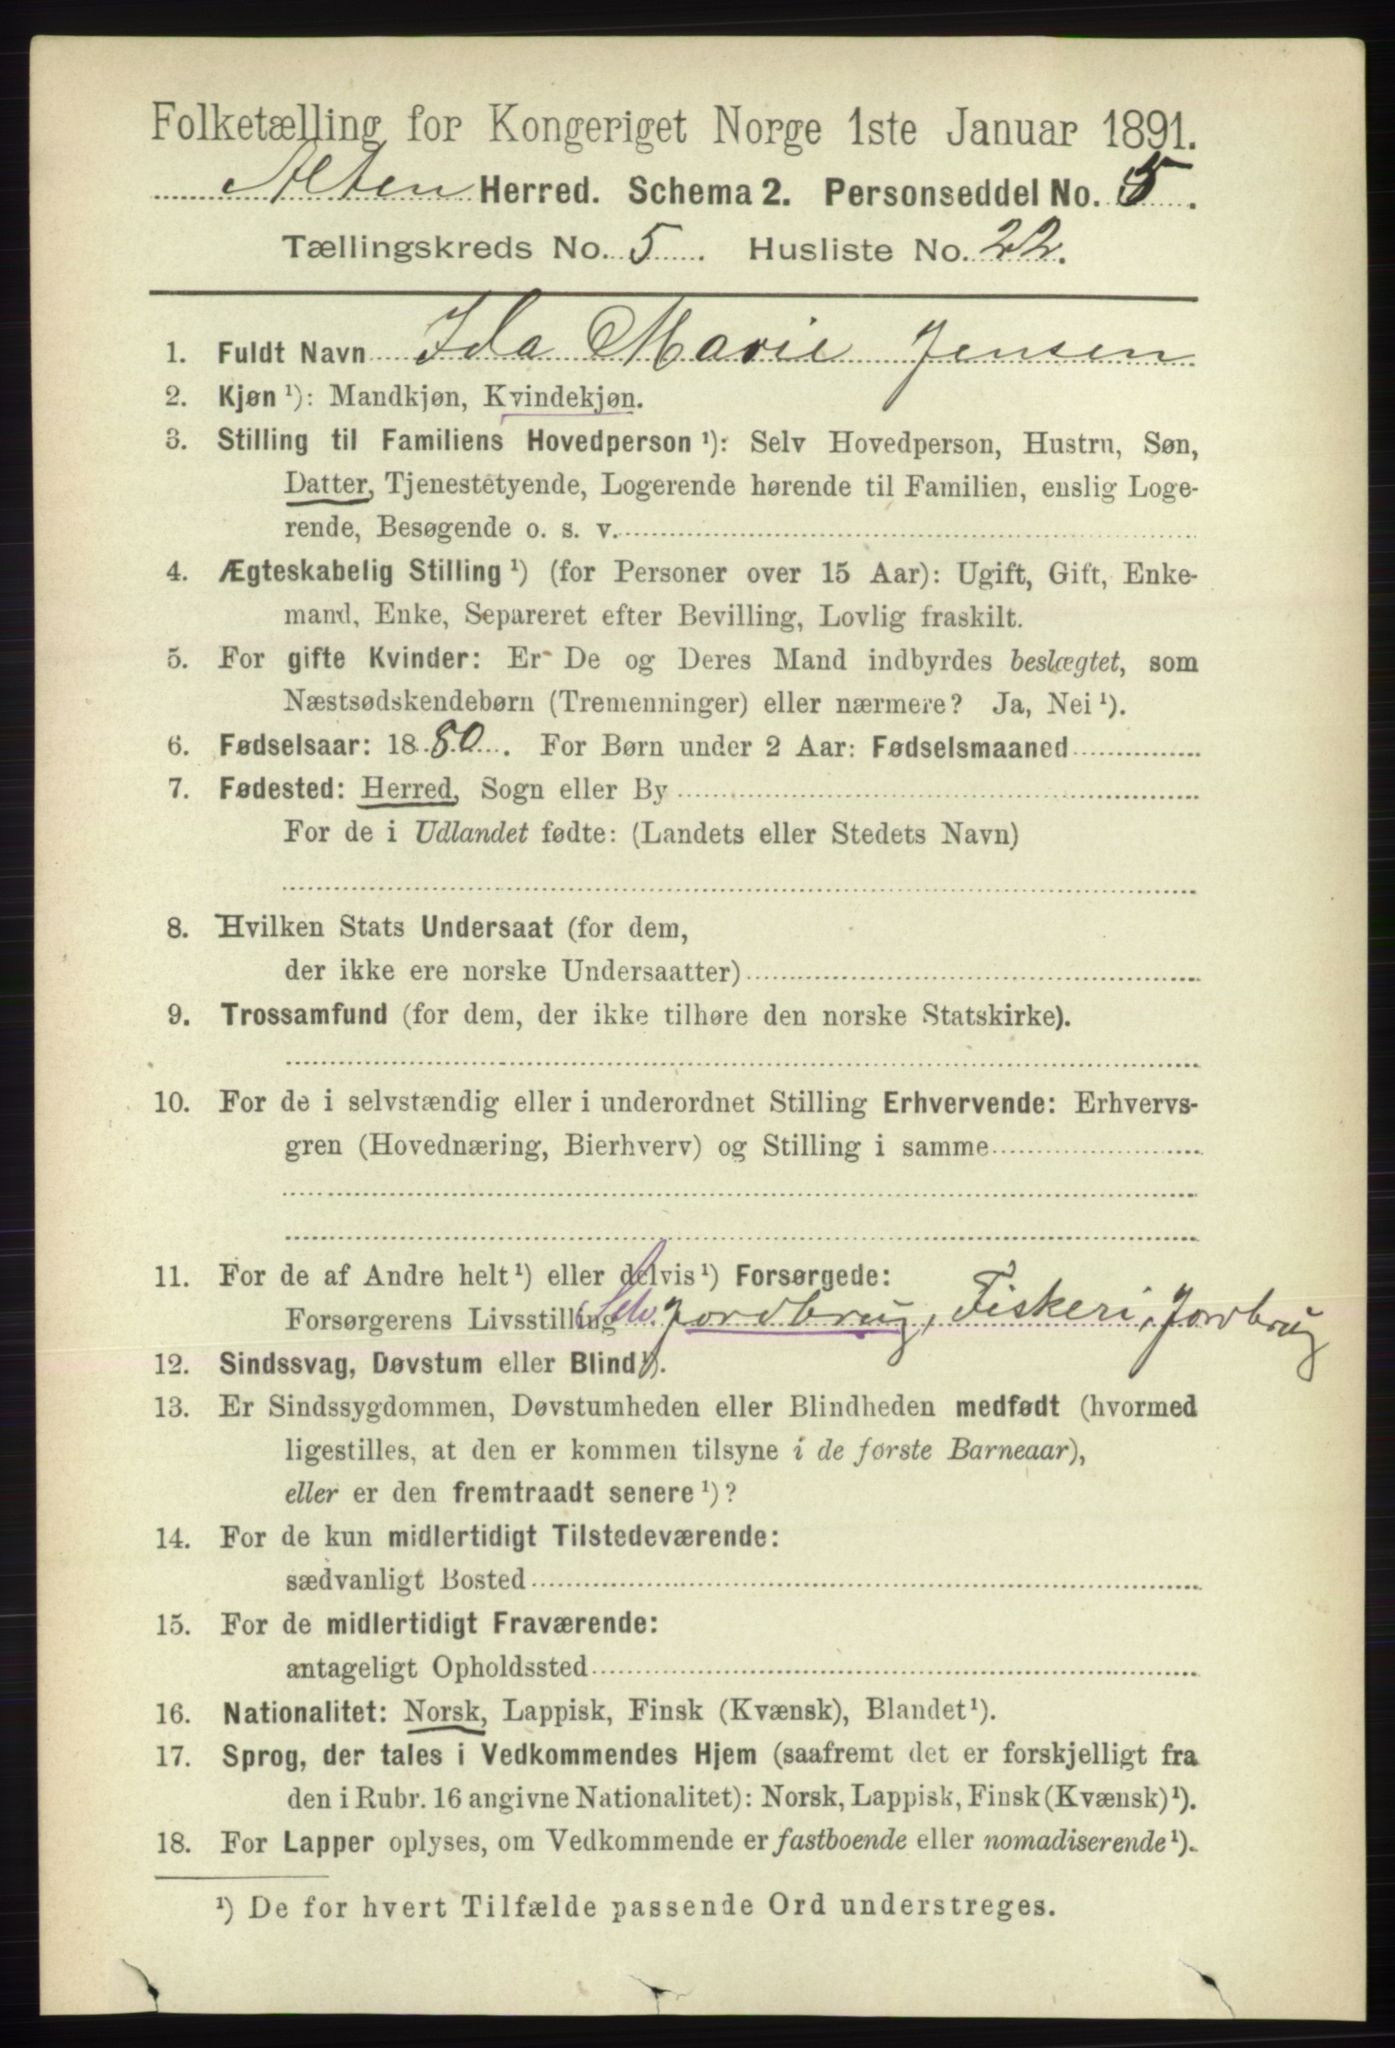 Folketælling for Kongeriget Norge 1ste Januar 1891.
Alten Herred. Schema 2. Personseddel No. 5.
Tællingskreds No. 5. Husliste No. 22.
1. Fuldt Navn Ida Marie Jensen
2. Kjøn ¹): Mandkjøn, Kvindekjøn.
3. Stilling til Familiens Hovedperson ¹): Selv Hovedperson, Hustru, Søn,
Datter, Tjenestetyende, Logerende hørende til Familien, enslig Loge-
rende, Besøgende o. s. v.
4. Ægteskabelig Stilling ¹) (for Personer over 15 Aar): Ugift, Gift, Enke-
mand, Enke, Separeret efter Bevilling, Lovlig fraskilt.
5. For gifte Kvinder: Er De og Deres Mand indbyrdes beslægtet, som
Næstsødskendebørn (Tremenninger) eller nærmere? Ja, Nei ¹).
6. Fødselsaar: 1880. For Børn under 2 Aar: Fødselsmaaned
7. Fødested: Herred, Sogn eller By
For de i Udlandet fødte: (Landets eller Stedets Navn)
8. Hvilken Stats Undersaat (for dem,
der ikke ere norske Undersaatter)
9. Trossamfund (for dem, der ikke tilhøre den norske Statskirke).
10. For de i selvstændig eller i underordnet Stilling Erhvervende: Erhvervs-
gren (Hovednæring, Bierhverv) og Stilling i samme
11. For de af Andre helt ¹) eller delvis ¹) Forsørgede:
Forsørgerens Livsstilling Jordbrug, Fiskeri, Jordbrug
12. Sindssvag, Døvstum eller Blind ¹).
13. Er Sindssygdommen, Døvstumheden eller Blindheden medfødt (hvormed
ligestilles, at den er kommen tilsyne i de første Barneaar),
eller er den fremtraadt senere ¹)?
14. For de kun midlertidigt Tilstedeværende:
sædvanligt Bosted
15. For de midlertidigt Fraværende:
antageligt Opholdssted
16. Nationalitet: Norsk, Lappisk, Finsk (Kvænsk), Blandet ¹).
17. Sprog, der tales i Vedkommendes Hjem (saafremt det er forskjelligt fra
den i Rubr. 16 angivne Nationalitet): Norsk, Lappisk, Finsk (Kvænsk) ¹).
18. For Lapper oplyses, om Vedkommende er fastboende eller nomadiserende ¹).
¹) De for hvert Tilfælde passende Ord understreges.